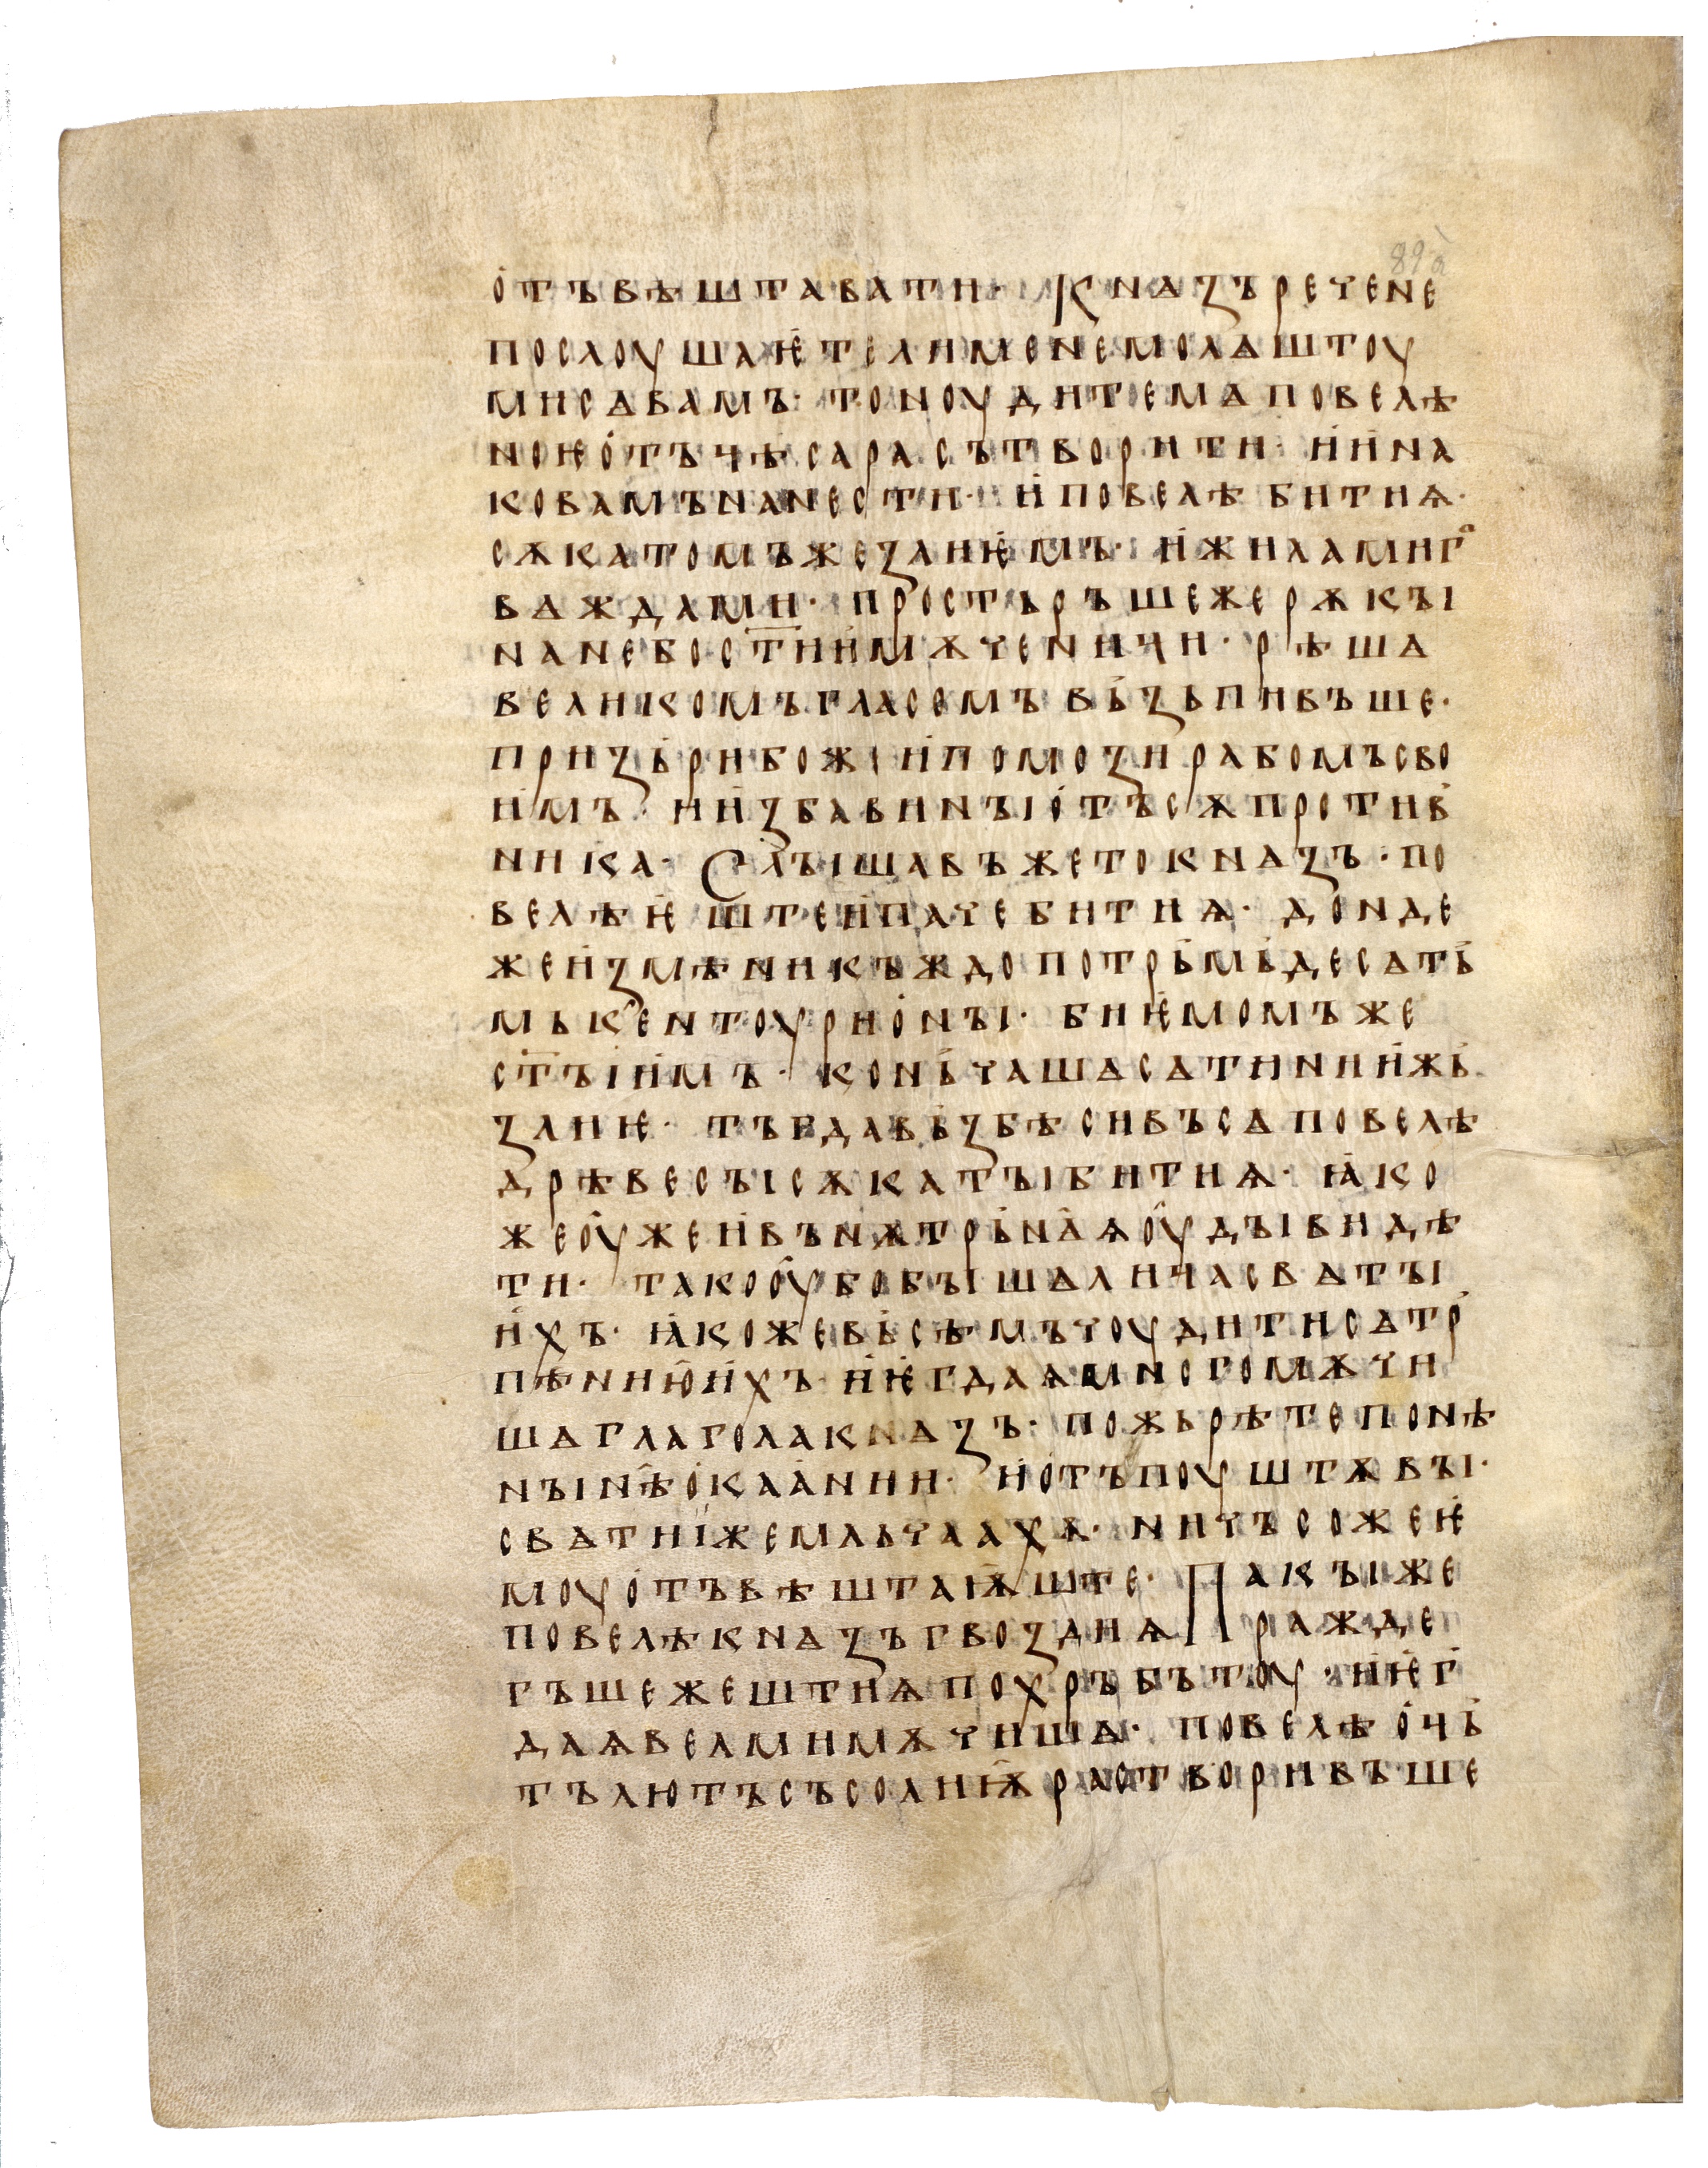 о҅тъвѣштавати· Кнѧзъ рече не
послоушаѥ҅те ли мене молѧштоу
ми сѧ вамъ· то ноудите мѧ повелѣ
ноѥ о҅тъ цѣсара сътворити· и҅ и҅на
ко вамъ нанести· и҅ повелѣ бити ѩ·
сѫкатомъ жезлиѥ҅мъ· и҅ жилами г҄
вѧждами· простьръше же рѫкы
на небо с҃тии҅ мѫченици· рѣшѧ
великомъ гласомъ въ҅зъпивъше·
призь҅ри божи и҅ помози рабомъ сво
и҅мъ· и и҅збави ны о҅тъ сѫпротив҅
ника· Слышавъ же то кнѧзъ· по
велѣ ѥ҅ште и҅ паче бити ѩ· донде
же и҅змѣни къждо по трь҅мъ҅ десѧтъ҅
мъ к҄ентоурио҅ны· биѥ҅момъ же
с҃тыи҅мъ· конь҅чашѧ сѧ тии и҅ жь҅
злиѥ· тъгда въ҅збѣсивъ сѧ повелѣ
дрѣвесы сѫкаты бити ѩ· ꙗ҅ко
же оу҅же и҅ вънѫтрь҅н҄ѧѩ оу҅ды видѣ
ти· тако оу҅бо бышѧ лица свѧты
и҅хъ· ꙗ҅коже вь҅сѣмъ чоудити сѧ тр҅ь
пѣнию҅ и҅хъ· и҅ ѥ҅гда ѩ много мѫчи
шѧ глагола кнѧзъ· пожьрѣте понѣ
нын҄ѣ о҅каа҅нии· и҅ о҅тъпоуштѫ вы·
свѧтии҅ же мльчаахѫ· ничъсоже ѥ҅
моу о҅тъвѣштаѭ҅ште· Пакы же
повелѣ кнѧзъ гвоздиѩ ражде
гъше жешти ѩ по хръбътоу· и҅ ѥ҅г҅
да ѩ велми мѫчишѧ· повелѣ о҅цъ҅
тъ лютъ съ солиѭ҅ растворивъше